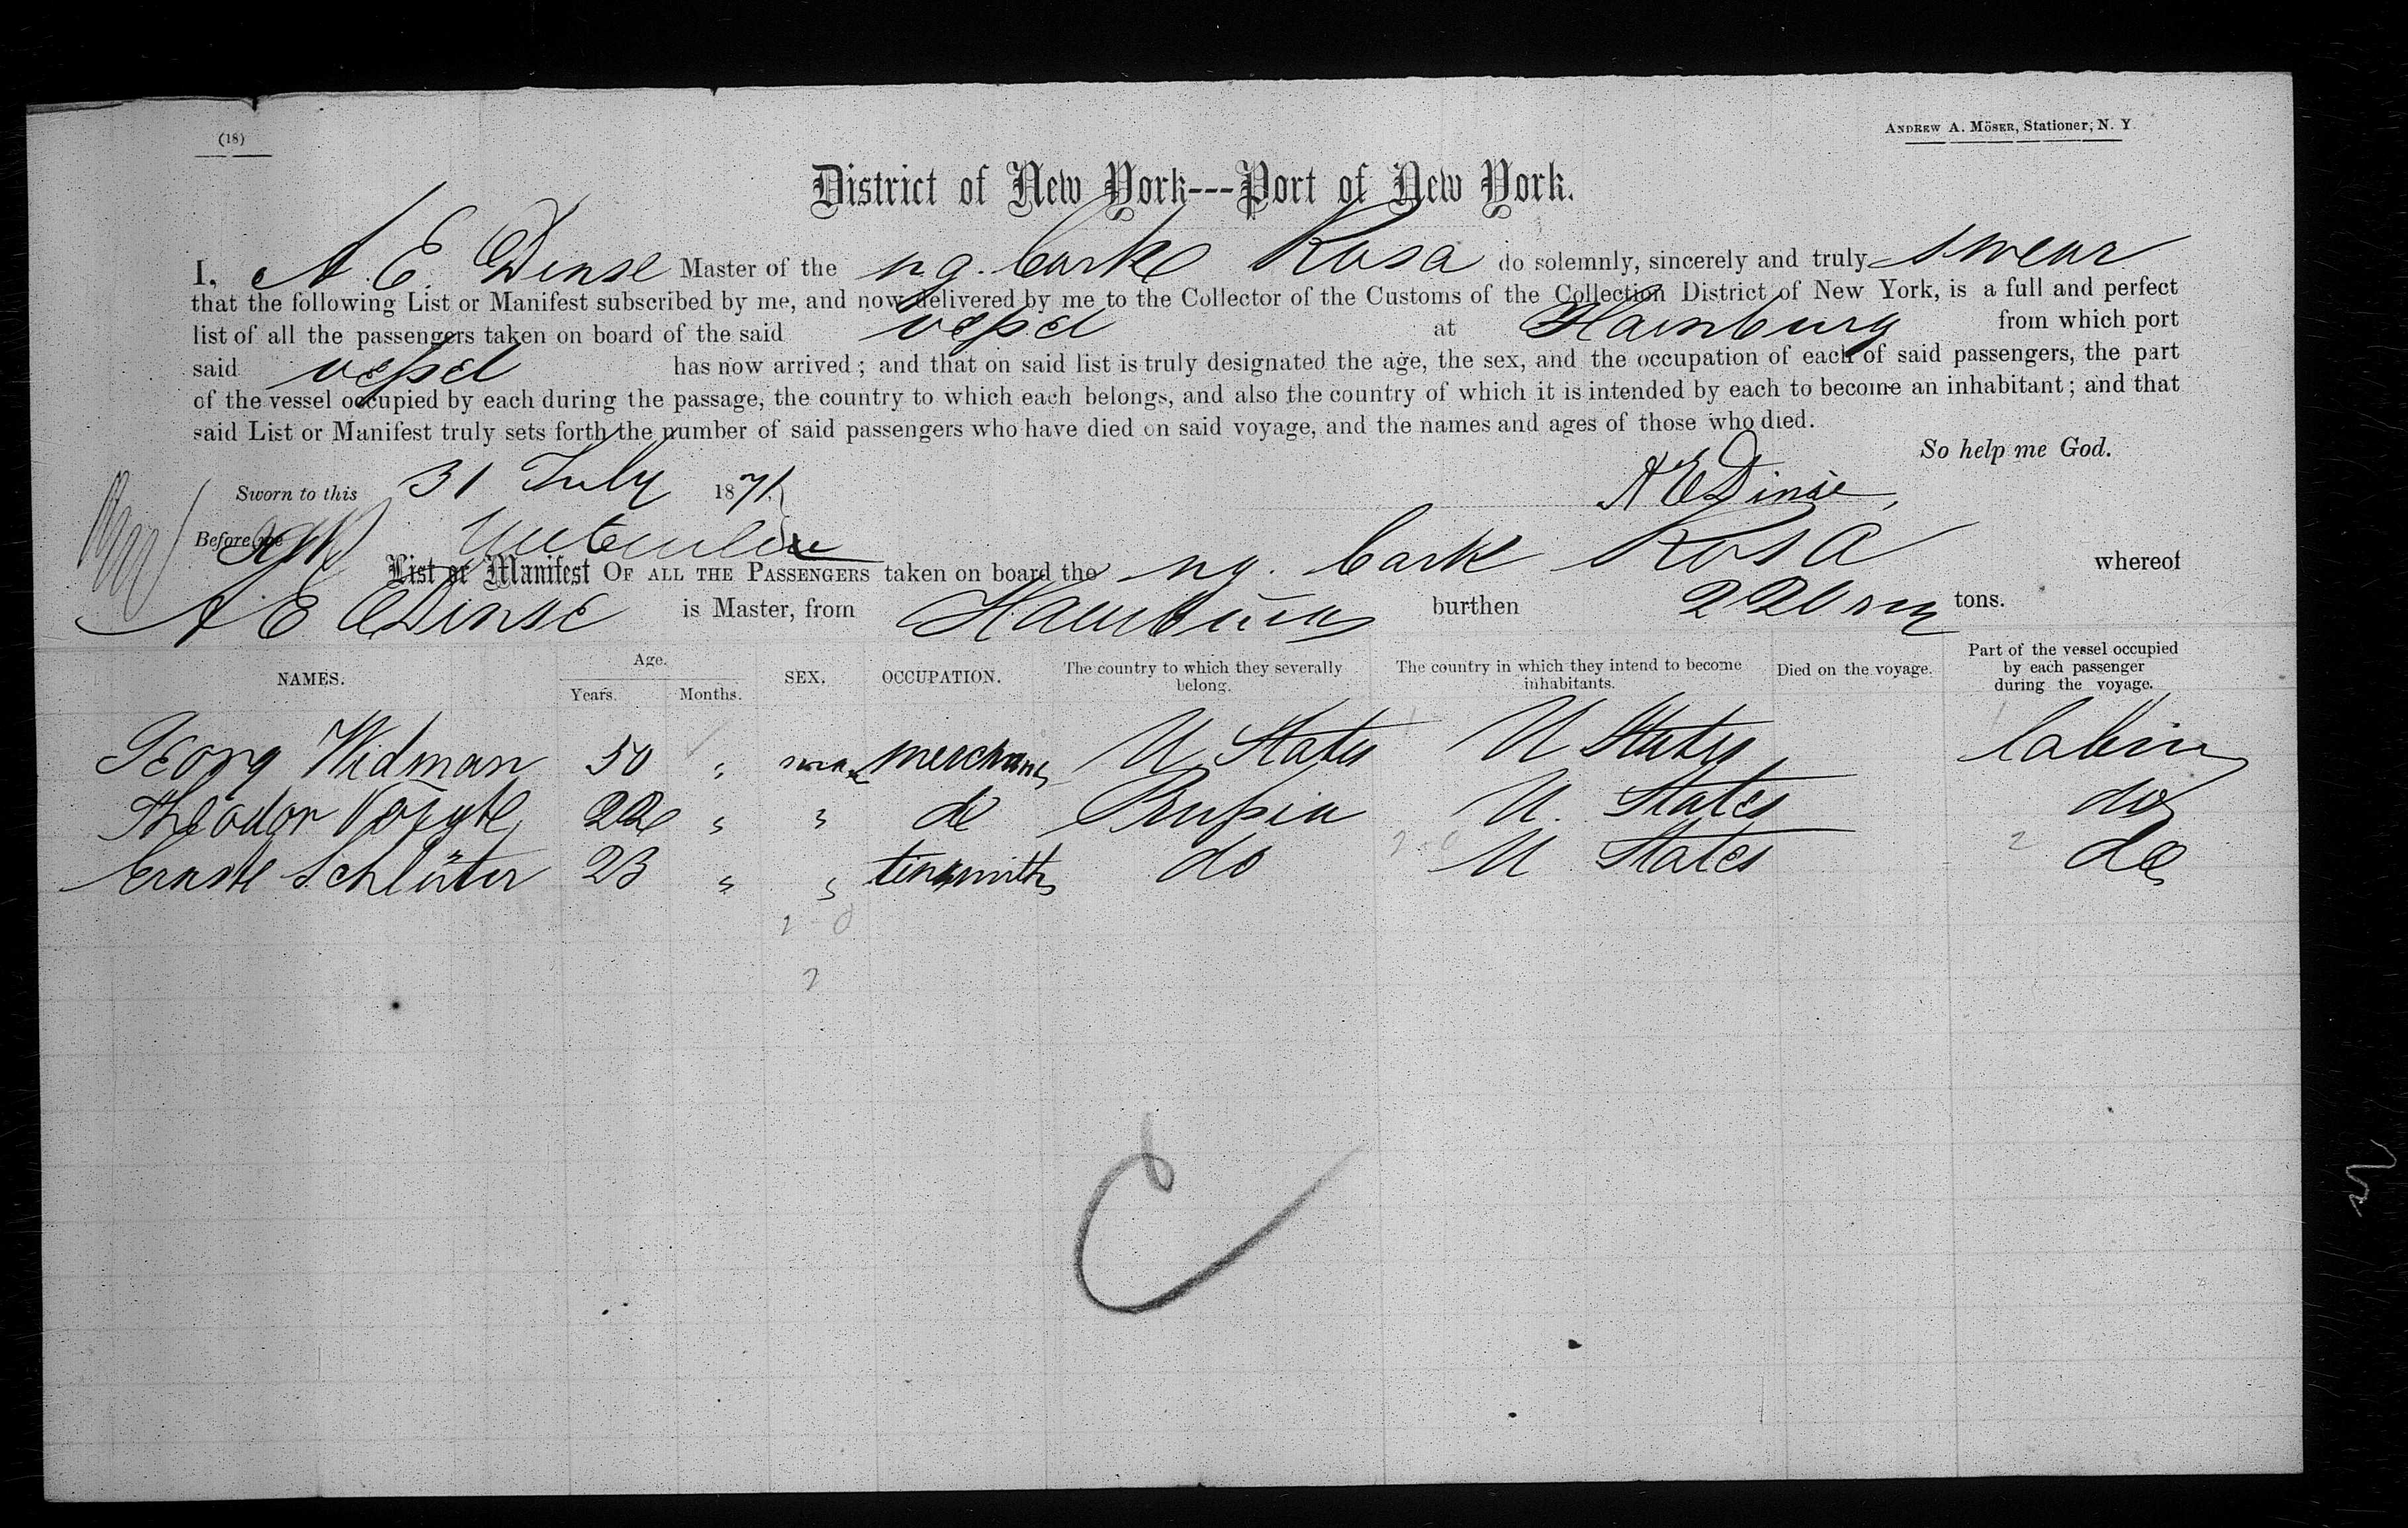 (18)
ANDREW A. MÖSER, Stationer, N. Y.
District of New York---Port of New York.
I, A. E. Dinse Master of the n g. barke Rosa do solemnly, sincerely and truly swear
that the following List or Manifest subscribed by me, and now delivered by me to the Collector of the Customs of the Collection District of New York, is a full and perfect
list of all the passengers taken on board of the said vessel at Hamburg from which port
said vessel has now arrived; and that on said list is truly designated the age, the sex, and the occupation of each of said passengers, the part
of the vessel occupied by each during the passage, the country to which each belongs, and also the country of which it is intended by each to become an inhabitant; and that
said List or Manifest truly sets forth the number of said passengers who have died on said voyage, and the names and ages of those who died.
So help me God.
Sworn to this 31 July 1871
A E Dinse
Before me
List or Manifest OF ALL THE PASSENGERS taken on board the ng. bark Rosa whereof
A E Dinse is Master, from Hamburg burthen 220 tons.
NAMES. Age. Years. Months. SEX. OCCUPATION. The country to which they severally belong. The country in which they intend to become inhabitants. Died on the voyage. Part of the vessel occupied by each passenger during the voyage.
Georg Widman 50 " merchant U. States U States Cabin
Theodor 22 " " do Prussia U. States do
Ernste Schlüter 23 " " tinsmith do U States do
2 0
2
C